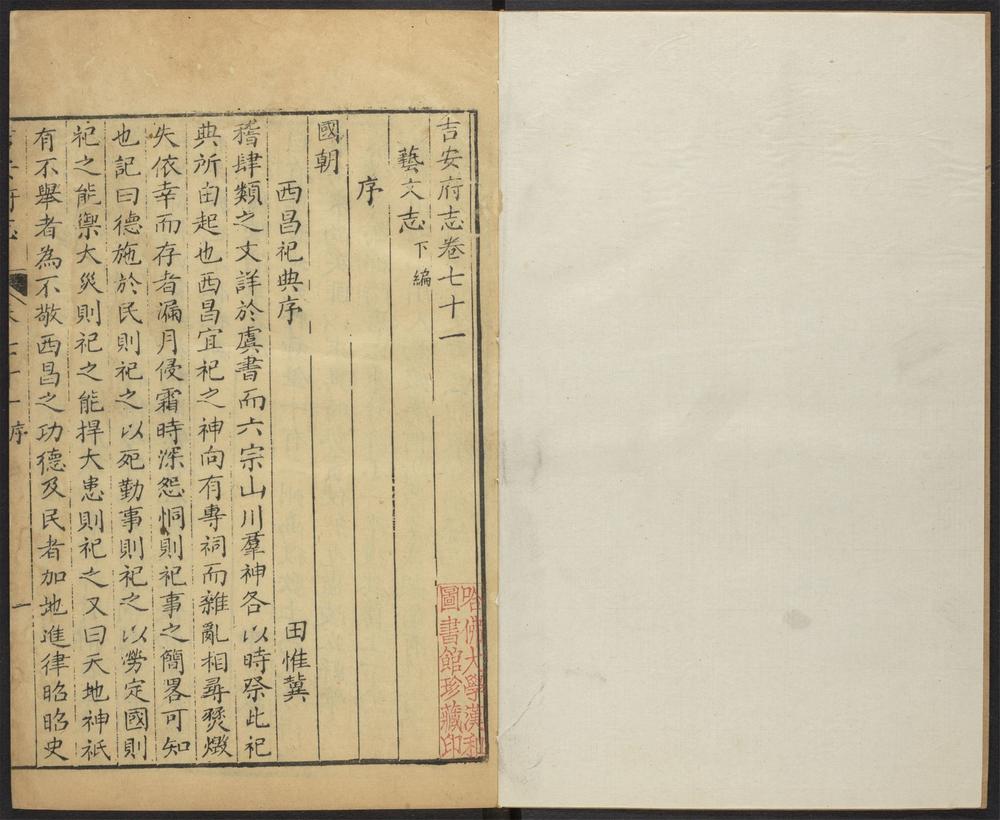 吉安府志卷七十一
藝文志下編
序
國朝
西昌祀典序 田惟冀
稽肆類之文詳於虞書而六宗山川羣神各以時祭此祀
典所由起也西昌宜祀之神向有專祠而雜亂相尋燹燬
失依幸而存者漏月侵霜時深怨恫則祀事之簡畧可知
也記曰德施於民則祀之以死勤事則祀之以勞定國則
祀之能禦大災則祀之能捍大患則祀之又曰天地神祇
有不舉者為不敬西昌之功德及民者加地進律昭昭史
序
一
哈佛大學漢和
圖書館珍藏印